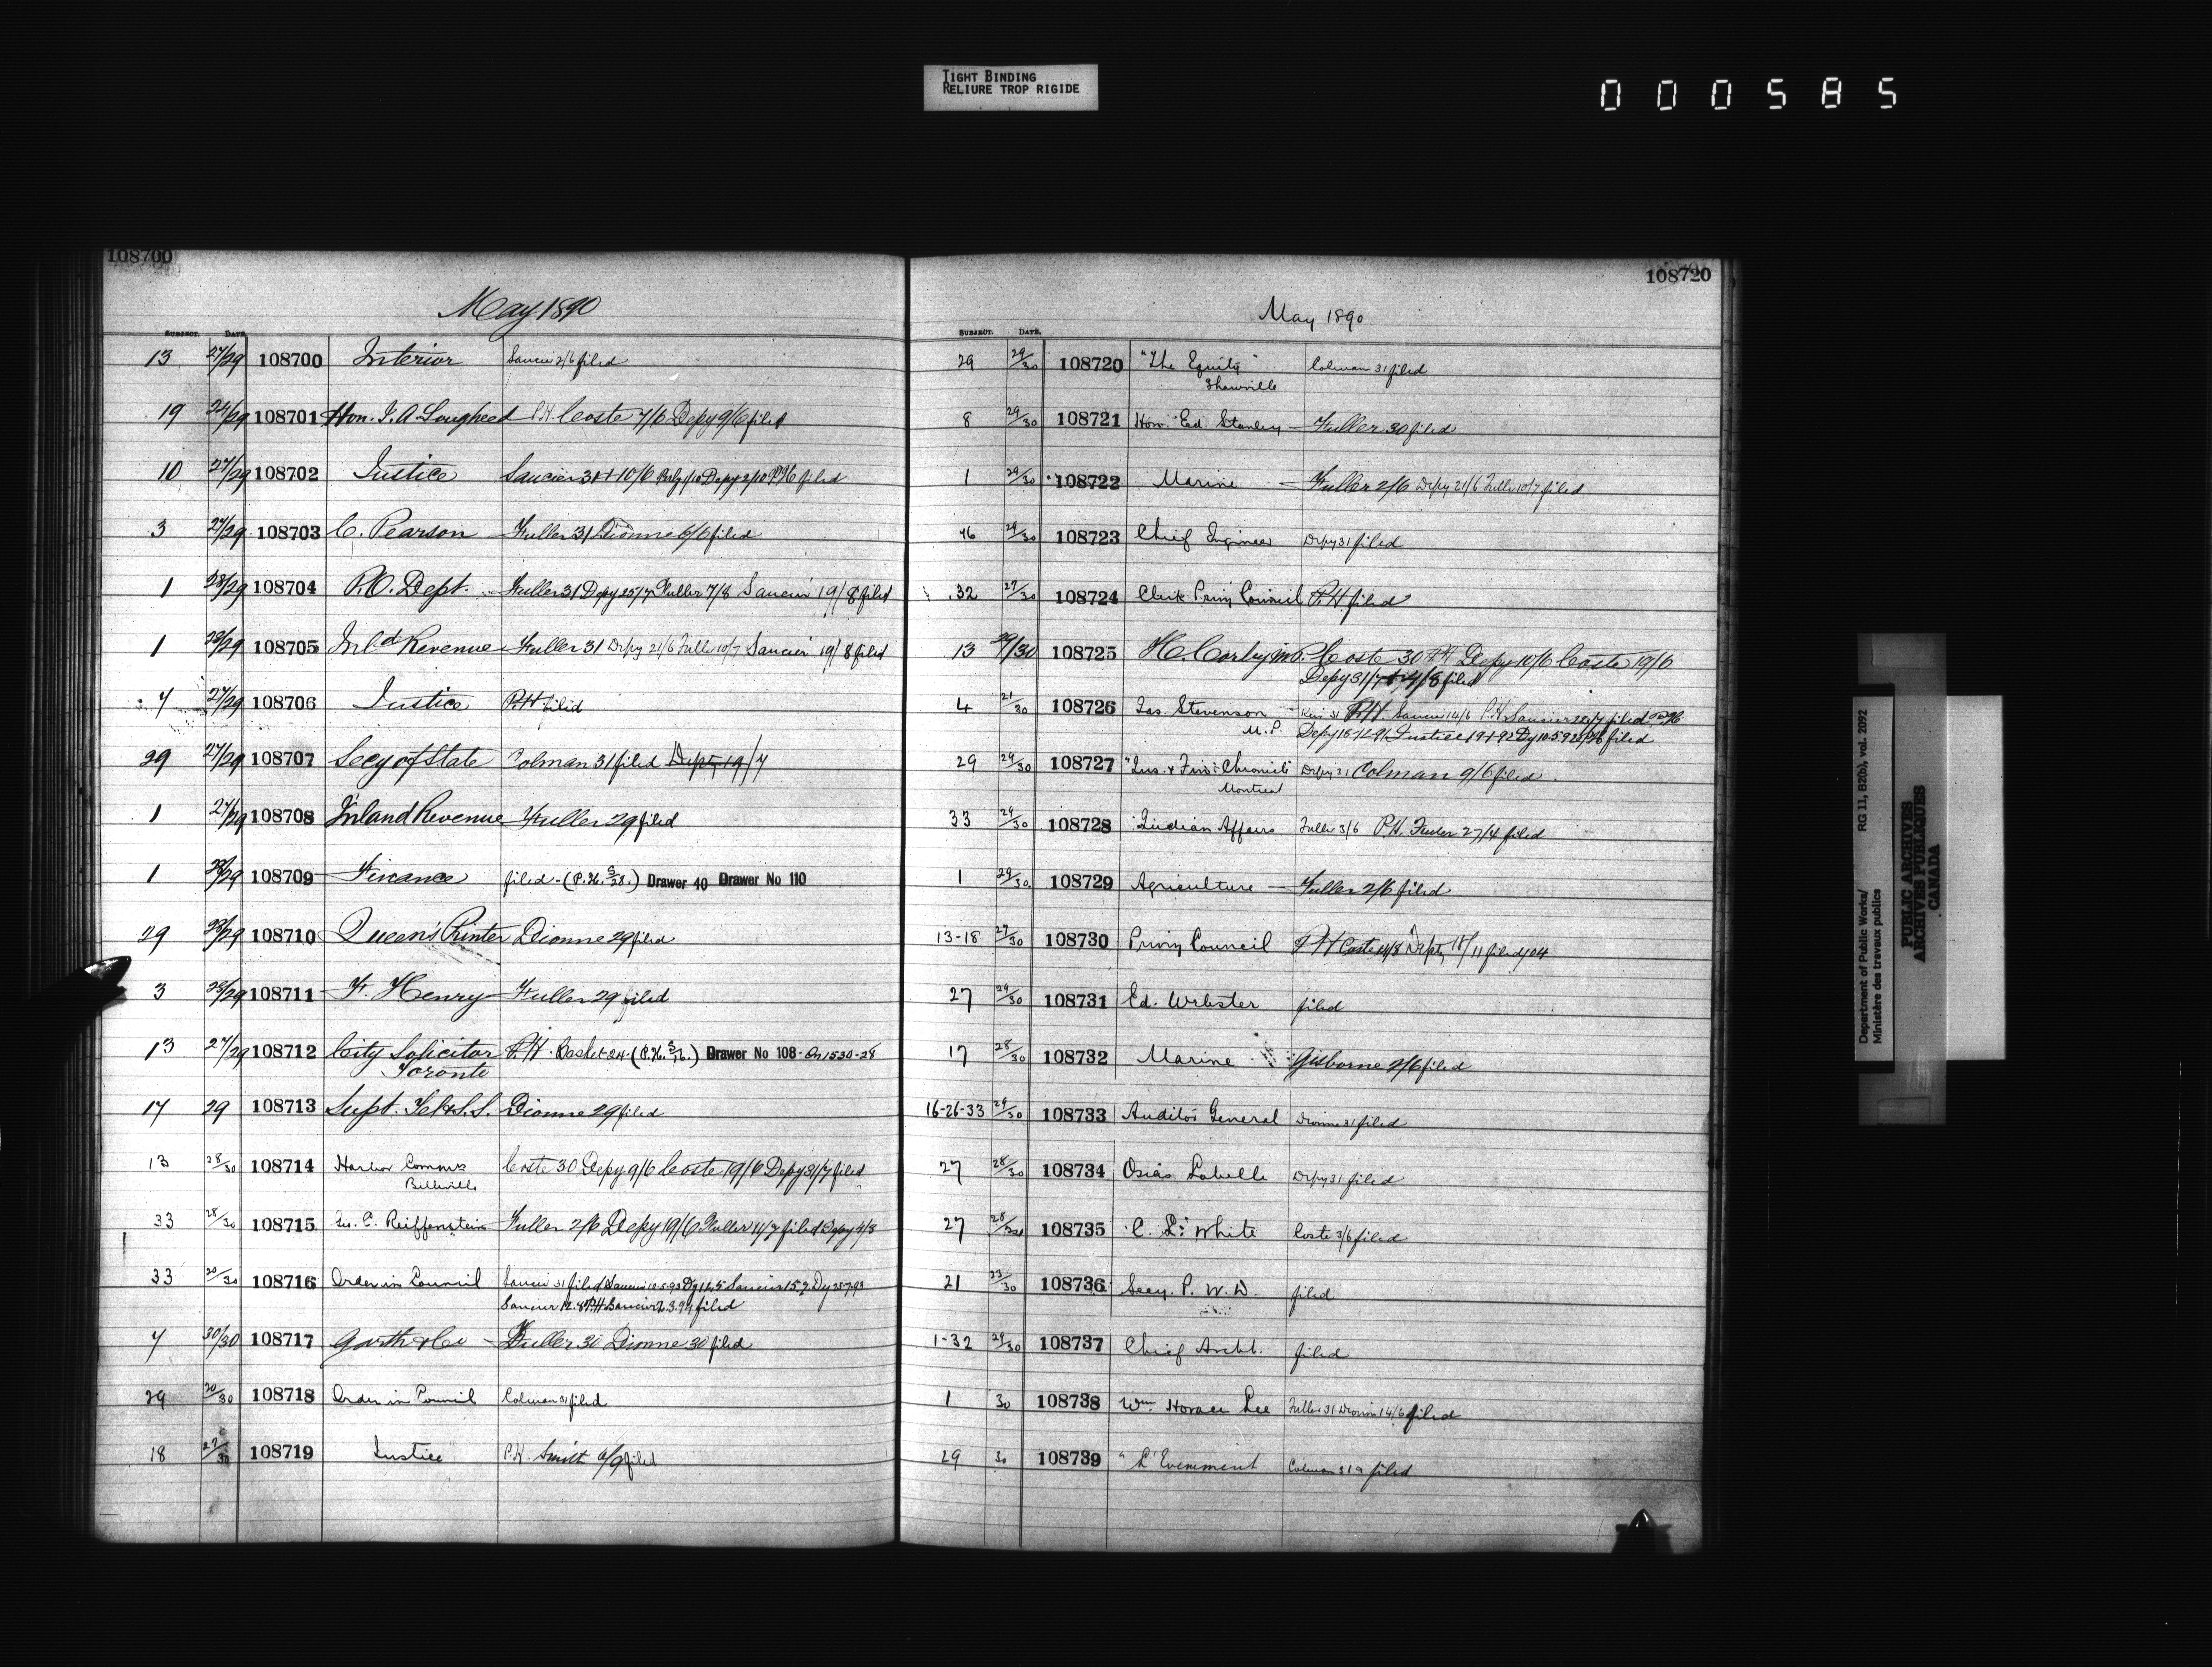 TIGHT BINDING
RELIURE TROP RIGIDE
000585
108700
May 1890
SUBJECT. DATE.
13 27/29 108700 Interior Saucier 2/6 filed
19 24/29 108701 Hon. J. A. Lougheed P.H. Coste 7/6 Depy 9/6 filed
10 27/29 108702 Justice Saucier 31 + 10/6 Depy 2/10 filed
3 27/29 108703 C. Pearson Fuller 31 Dionne 6/6 filed
1 28/29 108704 P.O. Dept. Fuller 31 Depy 25/7 Fuller 7/8 Saucier 19/8 filed
1 28/29 108705 Inld Revenue Fuller 31 Depy 21/6 Fuller 10/7 Saucier 19/8 filed
7 27/29 108706 Justice P.H. filed
29 27/29 108707 Secy of State Colman 31 filed Depy 19/7
1 27/29 108708 Inland Revenue Fuller 29 filed
1 28/29 108709 Finance filed - (P.H. 5/28.) Drawer 40 Drawer No 110
29 28/29 108710 Queen's Printer Dionne 29 filed
3 28/29 108711 F. Henry Fuller 29 filed
13 27/29 108712 City Solicitor P.H. Basket 24 - (P.H. 5/26.) Drawer No 108 - On 1530-28
Toronto
17 29 108713 Supt. Tel & S.S. Dionne 29 filed
13 28/30 108714 Harbor Commrs Coste 30 Depy 9/6 Coste 19/6 Depy 31/7 filed
Belleville
33 28/30 108715 Geo. C. Reiffenstein Fuller 2/6 Depy 19/6 Fuller 11/7 filed Depy 4/8
33 20/30 108716 Order in Council Saucier 31 filed Saucier 10.5.93 Dy 12.5 Saucier 15.7 Dy 25.7.93
Saucier 12.8 P.H. Saucier 2.3.94 filed
7 30/30 108717 Garth & Co Fuller 30 Dionne 30 filed
29 20/30 108718 Order in Council Colman 31 filed
18 27/30 108719 Justice P.H. Smith 6/9 filed
108720
May 1890
SUBJECT. DATE.
29 29/30 108720 "The Equity" Colman 31 filed
Shawville
8 29/30 108721 Hon. Ed Stanley Fuller 30 filed
1 29/30 108722 Marine Fuller 2/6 Depy 21/6 Fuller 10/7 filed
46 29/30 108723 Chief Engineer Depy 31 filed
32 27/30 108724 Clerk Privy Council P.H. filed
13 29/30 108725 H. Corby M.P. Coste 30 P.H. Depy 10/6 Coste 19/6
Depy 31/7 filed
4 21/30 108726 Jas. Stevenson P.H. Saucier 14/6 P.H. Saucier filed
M.P. Depy Justice filed
29 29/30 108727 "Ins. & Fin: Chronicle" Depy 31 Colman 9/6 filed
Montreal
33 29/30 108728 Indian Affairs Fuller 3/6 P.H. Fuller 27/4 filed
1 29/30 108729 Agriculture Fuller 2/6 filed
13-18 27/30 108730 Privy Council P.H. Coste Depy 18/11 filed
27 29/30 108731 Ed. Webster filed
17 28/30 108732 Marine Gisborne 2/6 filed
16-26-33 29/30 108733 Auditor General Dionne 31 filed
27 28/30 108734 Osias Labelle Depy 31 filed
27 28/30 108735 C. L. White Coste 3/6 filed
21 23/30 108736 Secy. P. W. D. filed
1-32 29/30 108737 Chief Archt. filed
1 30 108738 Wm. Horace Lee Fuller 31 Dionne 14/6 filed
29 30 108739 "L'Evenement Colman 31 filed
Department of Public Works/
Ministère des travaux publics
RG 11, B2(b), vol. 2092
PUBLIC ARCHIVES
ARCHIVES PUBLIQUES
CANADA